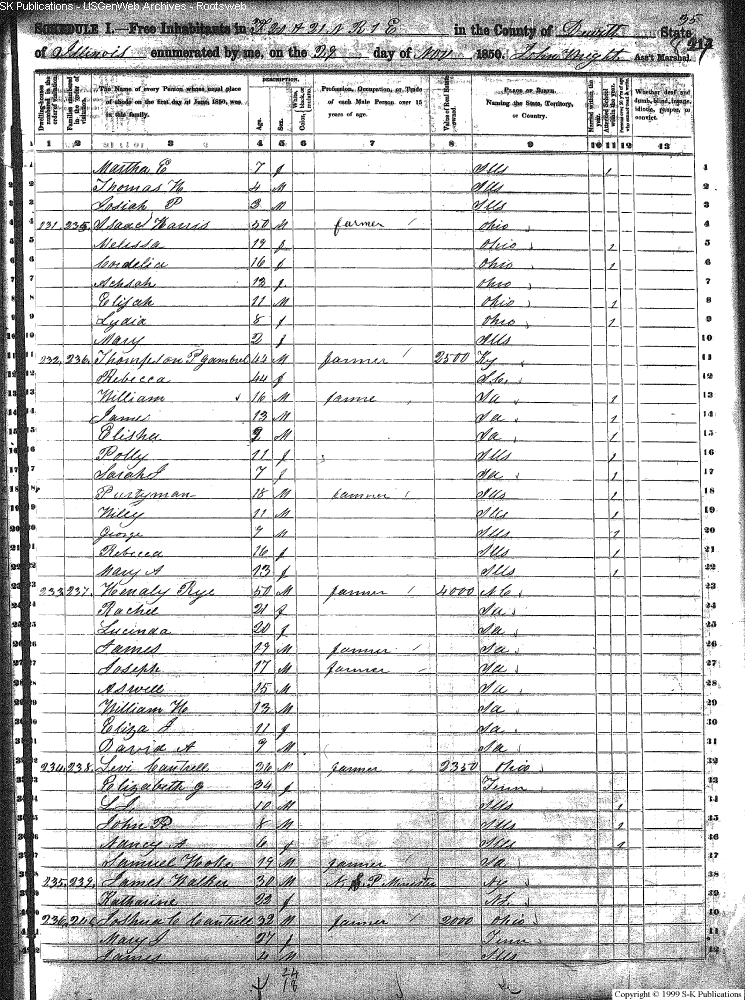 SK Publications - USGenWeb Archives - Rootsweb
35
SCHEDULE I.—Free Inhabitants in T 20 & 21 N R 1 E in the County of Dewitt State
of Illinois enumerated by me, on the 29 day of Nov 1850. John Wright Ass't Marshal. 217
Dwelling-houses numbered in the order of visitation.
Families numbered in the order of visitation.
The Name of every Person whose usual place of abode on the first day of June, 1850, was in this family.
DESCRIPTION.
Age.
Sex.
Color, White, black, or mulatto.
Profession, Occupation, or Trade of each Male Person over 15 years of age.
Value of Real Estate owned.
PLACE OF BIRTH. Naming the State, Territory, or Country.
Married within the year.
Attended School within the year.
Whether deaf and dumb, blind, insane, idiotic, pauper, or convict.
1 2 3 4 5 6 7 8 9 10 11 12 13
1 Martha E 7 f Ills 1 1
2 Thomas H 4 M Ills 2
3 Josiah P 3 M Ills 3
4 231 235 Isaac Harris 50 M farmer Ohio 4
5 Melissa 19 f Ohio 1 5
6 Cordelia 16 f Ohio 1 6
7 Achsah 12 f Ohio 7
8 Elijah 11 M Ohio 1 8
9 Lydia 8 f Ohio 1 9
10 Mary 2 f Ills 10
11 232 236 Thompson P gambrel 42 M farmer 2500 Ky 11
12 Rebecca 44 f 12
13 William 16 M farme Ia 1 13
14 James 13 M Ia 1 14
15 Elisha 9 M Ia 1 15
16 Polly 11 f Ills 1 16
17 Sarah J 7 f Ia 1 17
18 Perryman 18 M farmer Ills 1 18
19 Wiley 11 M Ills 1 19
20 George 7 M Ills 1 20
21 Rebecca 16 f Ills 1 21
22 Mary A 13 f Ills 1 22
23 233 237 Henaly Rye 50 M farmer 4000 N.C. 23
24 Rachel 21 f Ia 24
25 Lucinda 20 f Ia 25
26 James 19 M farmer Ia 26
27 Joseph 17 M farmer Ia 27
28 Aswell 15 M Ia 28
29 William H 13 M Ia 29
30 Eliza J 11 f Ia 30
31 David A 9 M Ia 31
32 234 238 Levi Cantrell 36 M farmer 2350 Ohio 32
33 Elizabeth G 34 f Tenn 33
34 L J 10 M Ills 1 34
35 John R 8 M Ills 1 35
36 Nancy A 6 f Ills 1 36
37 Samuel 19 M farmer Ia 37
38 235 239 James Walker 30 M Minister Ky 38
39 Katharine 23 f 39
40 236 240 Joshua C Cantrell 32 M farmer 2000 Ohio 40
41 Mary J 27 f Tenn 41
42 James 4 M Ills 42
Copyright © 1999 S-K Publications